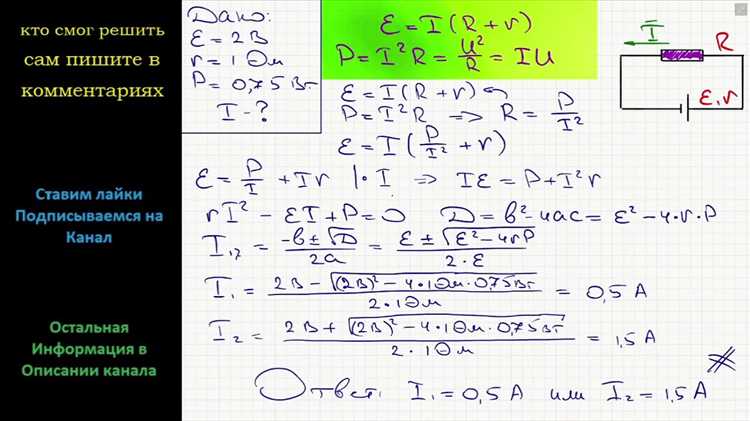 кто смог решить
сам пишите в
комментариях
Ставим лайки
Подписываемся на
Канал
Остальная
Информация в
Описании канала
Дано:
ε = 2 В
r = 1 Ом
P = 0,75 Вт
I - ?
ε = I (R + r)
P = I²R = U²/R = IU
I
R
ε, r
ε = I(R + r)
P = I²R ⇒ R = P/I²
ε = I(P/I² + r)
ε = P/I + Ir | · I ⇒ Iε = P + I²r
rI² - εI + P = 0 D = b² - 4ac = ε² - 4·r·P
I₁,₂ = (-b ± √D)/2a = (ε ± √(ε² - 4rP))/(2·ε)
I₁ = (2В - √((2В)² - 4·1Ом·0,75Вт))/(2·1Ом) = 0,5 А
I₂ = (2В + √((2В)² - 4·1Ом·0,75Вт))/(2·1Ом) = 1,5 А
Ответ: I₁ = 0,5 А или I₂ = 1,5 А